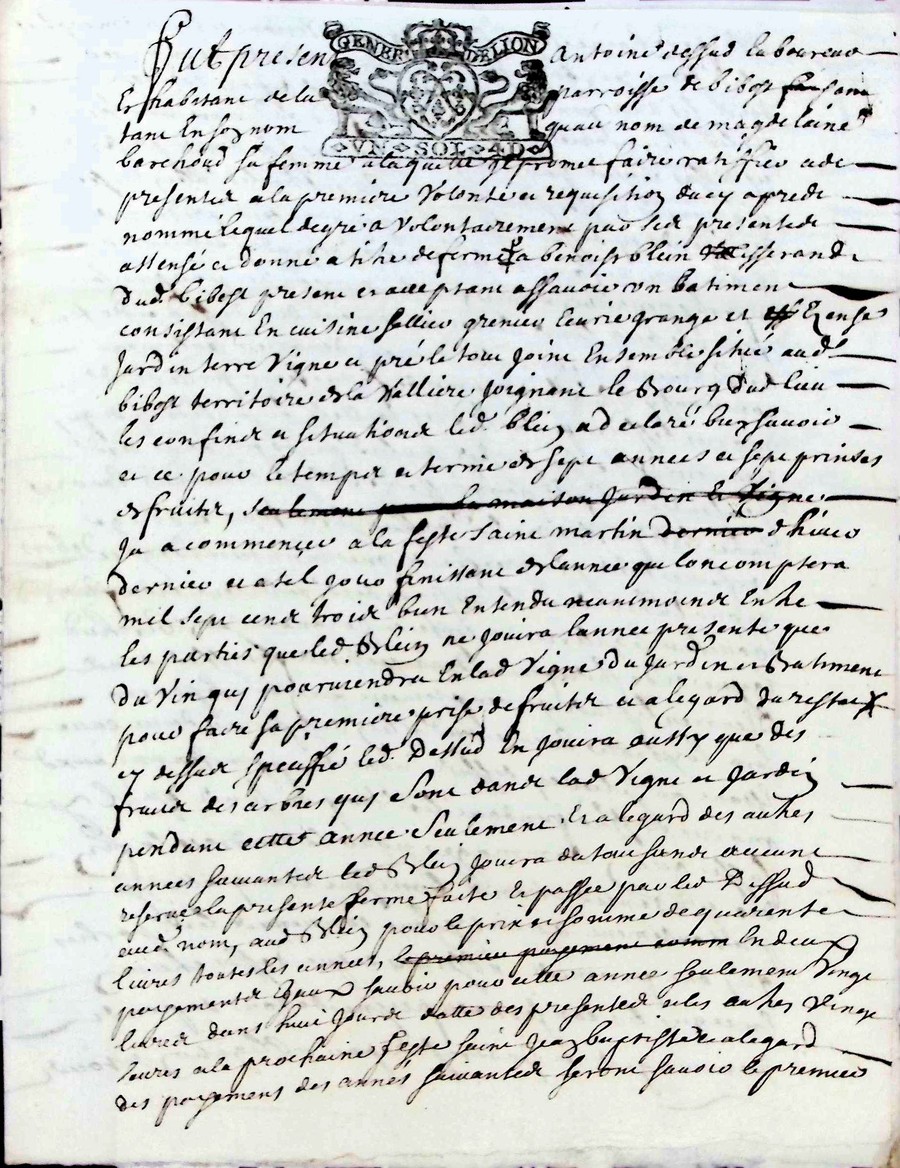 GENER DE LION
VN SOL 4D
Fut present Antoine dessud laboureur
Et habitant de la parroisse de bibost tant
tant En son nom quau nom de magdelaine
barchoud sa femme a laquelle il promet faire ratiffier a de
presentes a la premiere volonté et requisition du cy apres
nommé lequel de gré a volontairement par ses presentes
assensé et donné a titre de ferme a benoist blein tisserand
dud. bibost present et acceptant assavoir un batiment
consistant En cuisine sellier grenier Ecurie grange et
Jardin terre Vigne et pré le tout joint Ensemble situé aud.
bibost territoire de la Valliere joignant le Bourg dud lieu
les confins et situations led. blein a declaré bien savoir
et ce pour le temps et terme de sept années et sept prinses
de fruits, seulement pour la maison jardin et Vigne
Ja a commencer a la feste saint martin dernier d'hiver
dernier et a tel jour finissant de lannée que lon comptera
mil sept cents trois bien Entendu neantmoins Entre
les parties que led. Blein ne jouira lannée presente que
du Vin quy pourviendra En lad Vigne du Jardin et Batiment
pour faire sa premiere prise de fruits et a legard du reste
cy dessus speciffié led. Dessud En jouira aussy que des
fruits des arbres quy sont dans lad Vigne et Jardin
pendant cette année seulement Et a legard des autres
années suivantes led Blein jouira du tout sans aucune
reserve la presente ferme faite Et passée par led Dessud
aud. nom, aud Blein pour le prix et somme de quarente
livres toutes les années, le premier payement comm En deux
payements Egaux savoir pour cette année seulement Vingt
livres dans huit jours datte des presentes et les autres Vingt
livres a la prochaine feste saint Jean baptiste et a legard
des payemens des annés suivantes seront savoir le premier